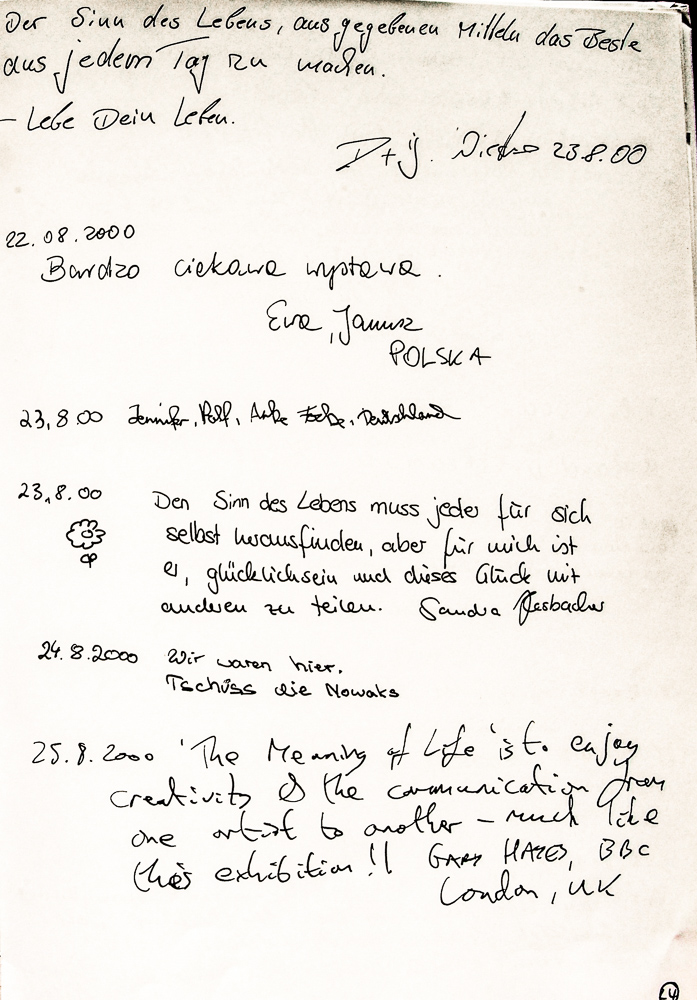 Der Sinn des Lebens, aus gegebenen Mitteln das Beste
aus jedem Tag zu machen.
- Lebe Dein Leben.
D + J. 23.8.00
22.08.2000
Bardzo ciekawa wystawa.
Ewa, Janusz
POLSKA
23,8.00 Jennifer, Ralf, Anke Deutschland
23,8.00 Den Sinn des Lebens muss jeder für sich
selbst herausfinden, aber für mich ist
er, glücklichsein und dieses Glück mit
anderen zu teilen. Sandra
24.8.2000 Wir waren hier.
Tschüss die Nowaks
25.8.2000 'The Meaning of Life' is to enjoy
creativity & the communication from
one artist to another – much like
this exhibition!! GARY HAYES, BBC
London, UK
24